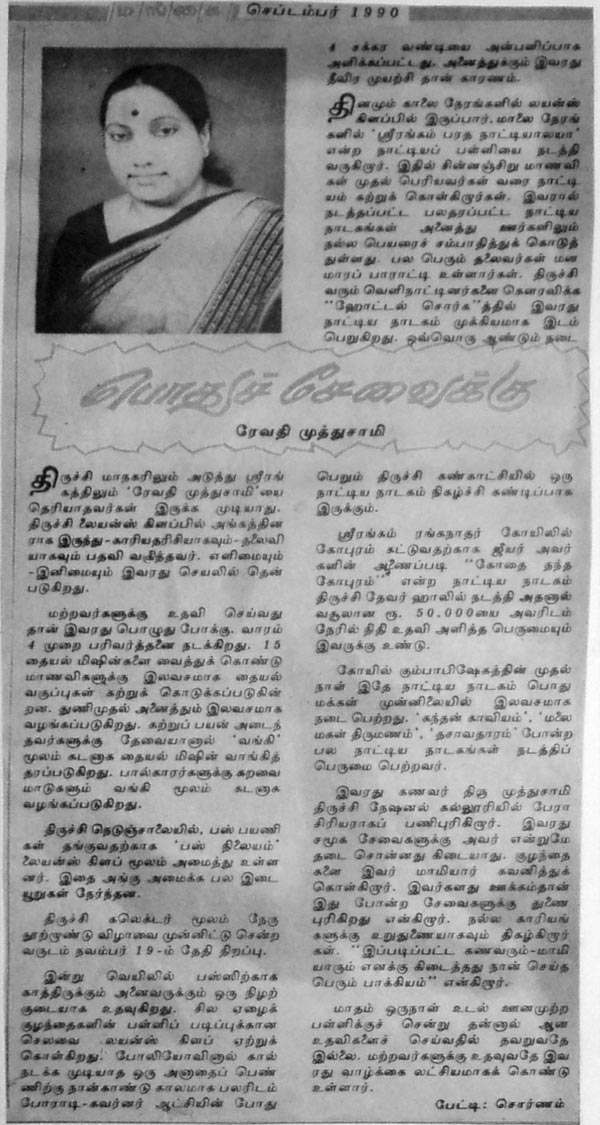 மங்கை செப்டம்பர் 1990
பொதுச் சேவைக்கு
ரேவதி முத்துசாமி
திருச்சி மாநகரிலும் அடுத்து ஸ்ரீரங்
கத்திலும் 'ரேவதி முத்துசாமி'யை
தெரியாதவர்கள் இருக்க முடியாது.
திருச்சி லையன்ஸ் கிளப்பில் அங்கத்தின
ராக இருந்து-காரியதரிசியாகவும்-தலைவி
யாகவும் பதவி வகித்தவர். எளிமையும்
-இனிமையும் இவரது செயலில் தென்
படுகிறது.
மற்றவர்களுக்கு உதவி செய்வது
தான் இவரது பொழுது போக்கு. வாரம்
4 முறை பரிவர்த்தனை நடக்கிறது. 15
தையல் மிஷின்களை வைத்துக் கொண்டு
மாணவிகளுக்கு இலவசமாக தையல்
வகுப்புகள் கற்றுக் கொடுக்கப்படுகின்
றன. துணிமுதல் அனைத்தும் இலவசமாக
வழங்கப்படுகிறது. கற்றுப் பயன் அடைந்
தவர்களுக்கு தேவையானால் 'வங்கி'
மூலம் கடனாக தையல் மிஷின் வாங்கித்
தரப்படுகிறது. பால்காரர்களுக்கு கறவை
மாடுகளும் வங்கி மூலம் கடனாக
வழங்கப்படுகிறது.
திருச்சி நெடுஞ்சாலையில், பஸ் பயணி
கள் தங்குவதற்காக 'பஸ் நிலையம்'
லையன்ஸ் கிளப் மூலம் அமைத்து உள்ள
னர். இதை அங்கு அமைக்க பல இடை
யூறுகள் நேர்ந்தன.
திருச்சி கலெக்டர் மூலம் நேரு
நூற்றாண்டு விழாவை முன்னிட்டு சென்ற
வருடம் நவம்பர் 19-ம் தேதி திறப்பு.
இன்று வெயிலில் பஸ்ஸிற்காக
காத்திருக்கும் அனைவருக்கும் ஒரு நிழற்
குடையாக உதவுகிறது. சில ஏழைக்
குழந்தைகளின் பள்ளிப் படிப்புக்கான
செலவை லயன்ஸ் கிளப் ஏற்றுக்
கொள்கிறது. போலியோவினால் கால்
நடக்க முடியாத ஒரு அனாதைப் பெண்
ணிற்கு நான்காண்டு காலமாக பலரிடம்
போராடி-கவர்னர் ஆட்சியின் போது
4 சக்கர வண்டியை அன்பளிப்பாக
அளிக்கப்பட்டது. அனைத்துக்கும் இவரது
தீவிர முயற்சி தான் காரணம்.
தினமும் காலை நேரங்களில் லயன்ஸ்
கிளப்பில் இருப்பார். மாலை நேரங்
களில் 'ஸ்ரீரங்கம் பரத நாட்டியாலயா'
என்ற நாட்டியப் பள்ளியை நடத்தி
வருகிறார். இதில் சின்னஞ்சிறு மாணவி
கள் முதல் பெரியவர்கள் வரை நாட்டி
யம் கற்றுக் கொள்கிறார்கள். இவரால்
நடத்தப்பட்ட பலதரப்பட்ட நாட்டிய
நாடகங்கள் அனைத்து ஊர்களிலும்
நல்ல பெயரைச் சம்பாதித்துக் கொடுத்
துள்ளது. பல பெரும் தலைவர்கள் மன
மாரப் பாராட்டி உள்ளார்கள். திருச்சி
வரும் வெளிநாட்டினர்களை கௌரவிக்க
"ஹோட்டல் சொர்க"த்தில் இவரது
நாட்டிய நாடகம் முக்கியமாக இடம்
பெறுகிறது. ஒவ்வொரு ஆண்டும் நடை
பெறும் திருச்சி கண்காட்சியில் ஒரு
நாட்டிய நாடகம் நிகழ்ச்சி கண்டிப்பாக
இருக்கும்.
ஸ்ரீரங்கம் ரங்கநாதர் கோயிலில்
கோபுரம் கட்டுவதற்காக ஜீயர் அவர்
களின் அணைப்படி "கோதை தந்த
கோபுரம்" என்ற நாட்டிய நாடகம்
திருச்சி தேவர் ஹாலில் நடத்தி அதனால்
வசூலான ரூ. 50.000யை அவரிடம்
நேரில் நிதி உதவி அளித்த பெருமையும்
இவருக்கு உண்டு.
கோயில் கும்பாபிஷேகத்தின் முதல்
நாள் இதே நாட்டிய நாடகம் பொது
மக்கள் முன்னிலையில் இலவசமாக
நடை பெற்றது. 'கந்தன் காவியம்', 'மலை
மகள் திருமணம்', 'தசாவதாரம்' போன்ற
பல நாட்டிய நாடகங்கள் நடத்திப்
பெருமை பெற்றவர்.
இவரது கணவர் திரு முத்துசாமி
திருச்சி நேஷனல் கல்லூரியில் பேரா
சிரியராகப் பணிபுரிகிறார். இவரது
சமூக சேவைகளுக்கு அவர் என்றுமே
தடை சொன்னது கிடையாது. குழந்தை
களை இவர் மாமியார் கவனித்துக்
கொள்கிறார். இவர்களது ஊக்கம்தான்
இது போன்ற சேவைகளுக்கு துணை
புரிகிறது என்கிறார். நல்ல காரியங்
களுக்கு உறுதுணையாகவும் திகழ்கிறார்
கள். "இப்படிப்பட்ட கணவரும்-மாமி
யாரும் எனக்கு கிடைத்தது நான் செய்த
பெரும் பாக்கியம்" என்கிறார்.
மாதம் ஒருநாள் உடல் ஊனமுற்ற
பள்ளிக்குச் சென்று தன்னால் ஆன
உதவிகளைச் செய்வதில் தவறுவதே
இல்லை. மற்றவர்களுக்கு உதவுவதே இவ
ரது வாழ்க்கை லட்சியமாகக் கொண்டு
உள்ளார்.
பேட்டி: சொர்ணம்